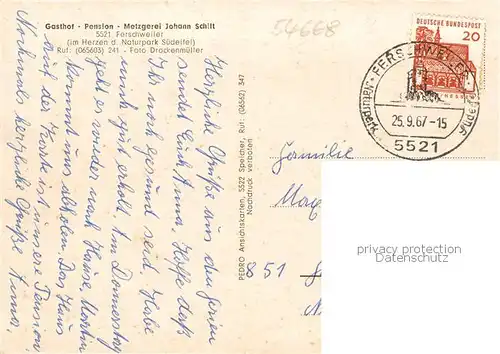 Gasthof - Pension - Metzgerei Johann Schilt
5521 Ferschweiler
(im Herzen d. Naturpark Südeifel)
Ruf: (065603) 241 - Foto Drockenmüller
54668
DEUTSCHE BUNDESPOST
20
FERSCHWEILER
Naturpark
25.9.67-15
5521
Herzliche Grüße aus den Ferien
sendet Euch Oma. Hoffe daß
Ihr noch gesund seid. Habe
mich gut erholt. Am Donnerstag
geht es wieder nach Hause. Martin
kommt uns abholen. Das Haus
auf der Karte ist unsere Pension
Nochmals herzliche Grüße Oma.
PEDRO Ansichtskarten, 5522 Speicher, Ruf: (06562) 347
Nachdruck verboten
Familie
851
privacy protection
Datenschutz